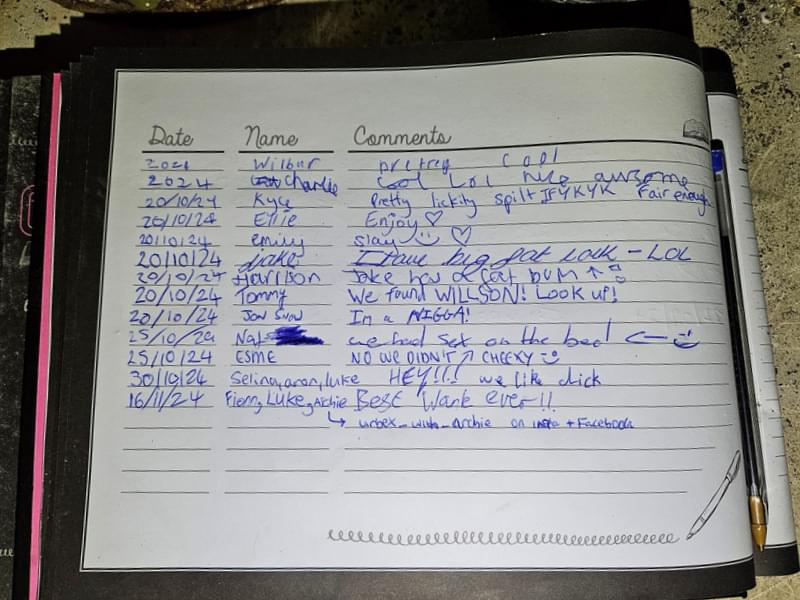 Date Name Comments
2021 Wilbur pretrey cool
2024 Charlie cool Lol nice awsome
20/10/24 Kyle Pretty lickity spilt IFYKYK Fair enough
20/10/24 Ellie Enjoy ♡
20/10/24 emily slay ♡
20/10/24 Jake I have big fat cock - LOL
20/10/24 Harrison Jake has a fat bum ↑
20/10/24 Tommy We found WILLSON! LOOK up!
20/10/24 JON SNOW Im a NIGGA!
25/10/24 Nat we had sex on the bed ←
25/10/24 ESME NO WE DIDN'T ↗ CHEEKY
30/10/24 Selina, aron, luke HEY!!!! we like dick
16/11/24 Fionn, LUKE, Archie Best Wank ever!!
↳ urbex_with_archie on insta + Facebook